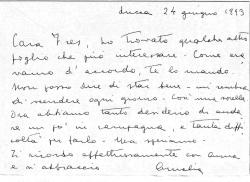 Lucca 24 giugno 1993
Cara Ines, ho trovato qualche altro
foglio che può interessare. Come era-
vamo d'accordo, te lo mando.
Non posso dire di star bene - mi sembra
di scendere ogni giorno. Così mia sorella
Ora abbiamo tanto desiderio di anda
re un po' in campagna, e tanta diffi
coltà per farlo. Ma speriamo.
Ti ricordo affettuosamente con
e vi abbraccio